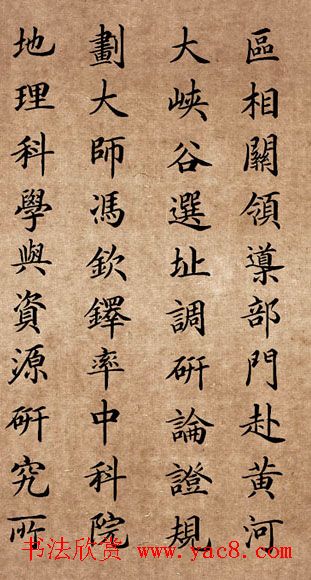 區相關領導部門赴黃河
大峽谷選址調研論證規
劃大師馮欽鐸率中科院
地理科學與資源研究所
书法欣赏 www.yac8.com